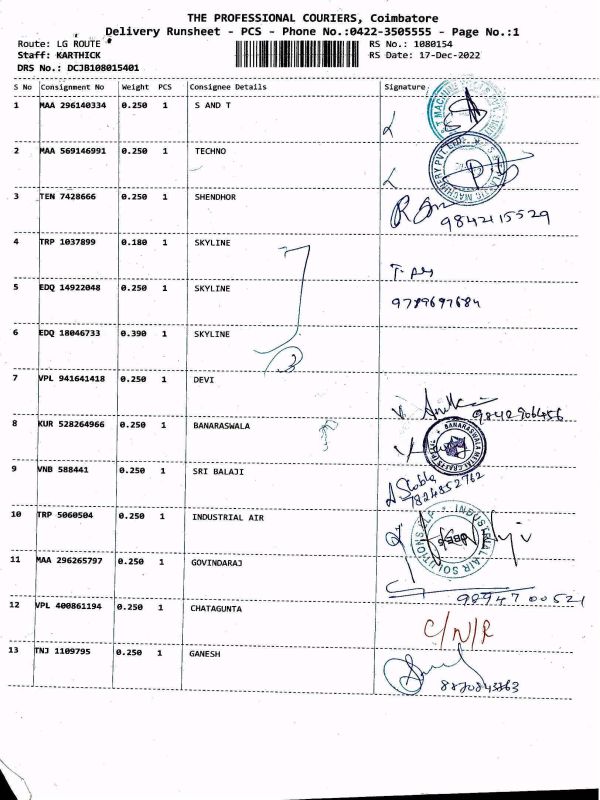 THE PROFESSIONAL COURIERS, Coimbatore
Delivery Runsheet - PCS - Phone No.:0422-3505555 - Page No.:1
Route: LG ROUTE
RS No.: 1080154
Staff: KARTHICK
RS Date: 17-Dec-2022
DRS No.: DCJB108015401
S No Consignment No Weight PCS Consignee Details Signature
1 MAA 296140334 0.250 1 S AND T
2 MAA 569146991 0.250 1 TECHNO
3 TEN 7428666 0.250 1 SHENDHOR
9842115529
4 TRP 1037899 0.180 1 SKYLINE
5 EDQ 14922048 0.250 1 SKYLINE
9789697684
6 EDQ 18046733 0.390 1 SKYLINE
3
7 VPL 941641418 0.250 1 DEVI
9842906456
8 KUR 528264966 0.250 1 BANARASWALA
9 VNB 588441 0.250 1 SRI BALAJI
7824852762
10 TRP 5060504 0.250 1 INDUSTRIAL AIR
INDUSTRIAL AIR SOLUTIONS LLP
11 MAA 296265797 0.250 1 GOVINDARAJ
9894700521
12 VPL 400861194 0.250 1 CHATAGUNTA
C/N/R
13 TNJ 1109795 0.250 1 GANESH